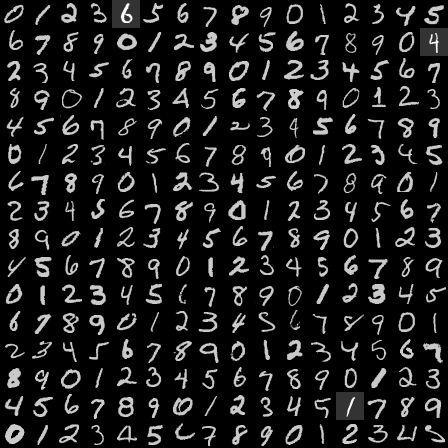 0 1 2 3 6 5 6 7 8 9 0 1 2 3 4 5
6 7 8 9 0 1 2 3 4 5 6 7 8 9 0 4
2 3 4 5 6 7 8 9 0 1 2 3 4 5 6 7
8 9 0 1 2 3 4 5 6 7 8 9 0 1 2 3
4 5 6 7 8 9 0 1 2 3 4 5 6 7 8 9
0 1 2 3 4 5 6 7 8 9 0 1 2 3 4 5
6 7 8 9 0 1 2 3 4 5 6 7 8 9 0 1
2 3 4 5 6 7 8 9 0 1 2 3 4 5 6 7
8 9 0 1 2 3 4 5 6 7 8 9 0 1 2 3
4 5 6 7 8 9 0 1 2 3 4 5 6 7 8 9
0 1 2 3 4 5 6 7 8 9 0 1 2 3 4 5
6 7 8 9 0 1 2 3 4 5 6 7 8 9 0 1
2 3 4 5 6 7 8 9 0 1 2 3 4 5 6 7
8 9 0 1 2 3 4 5 6 7 8 9 0 1 2 3
4 5 6 7 8 9 0 1 2 3 4 5 1 7 8 9
0 1 2 3 4 5 6 7 8 9 0 1 2 3 4 5